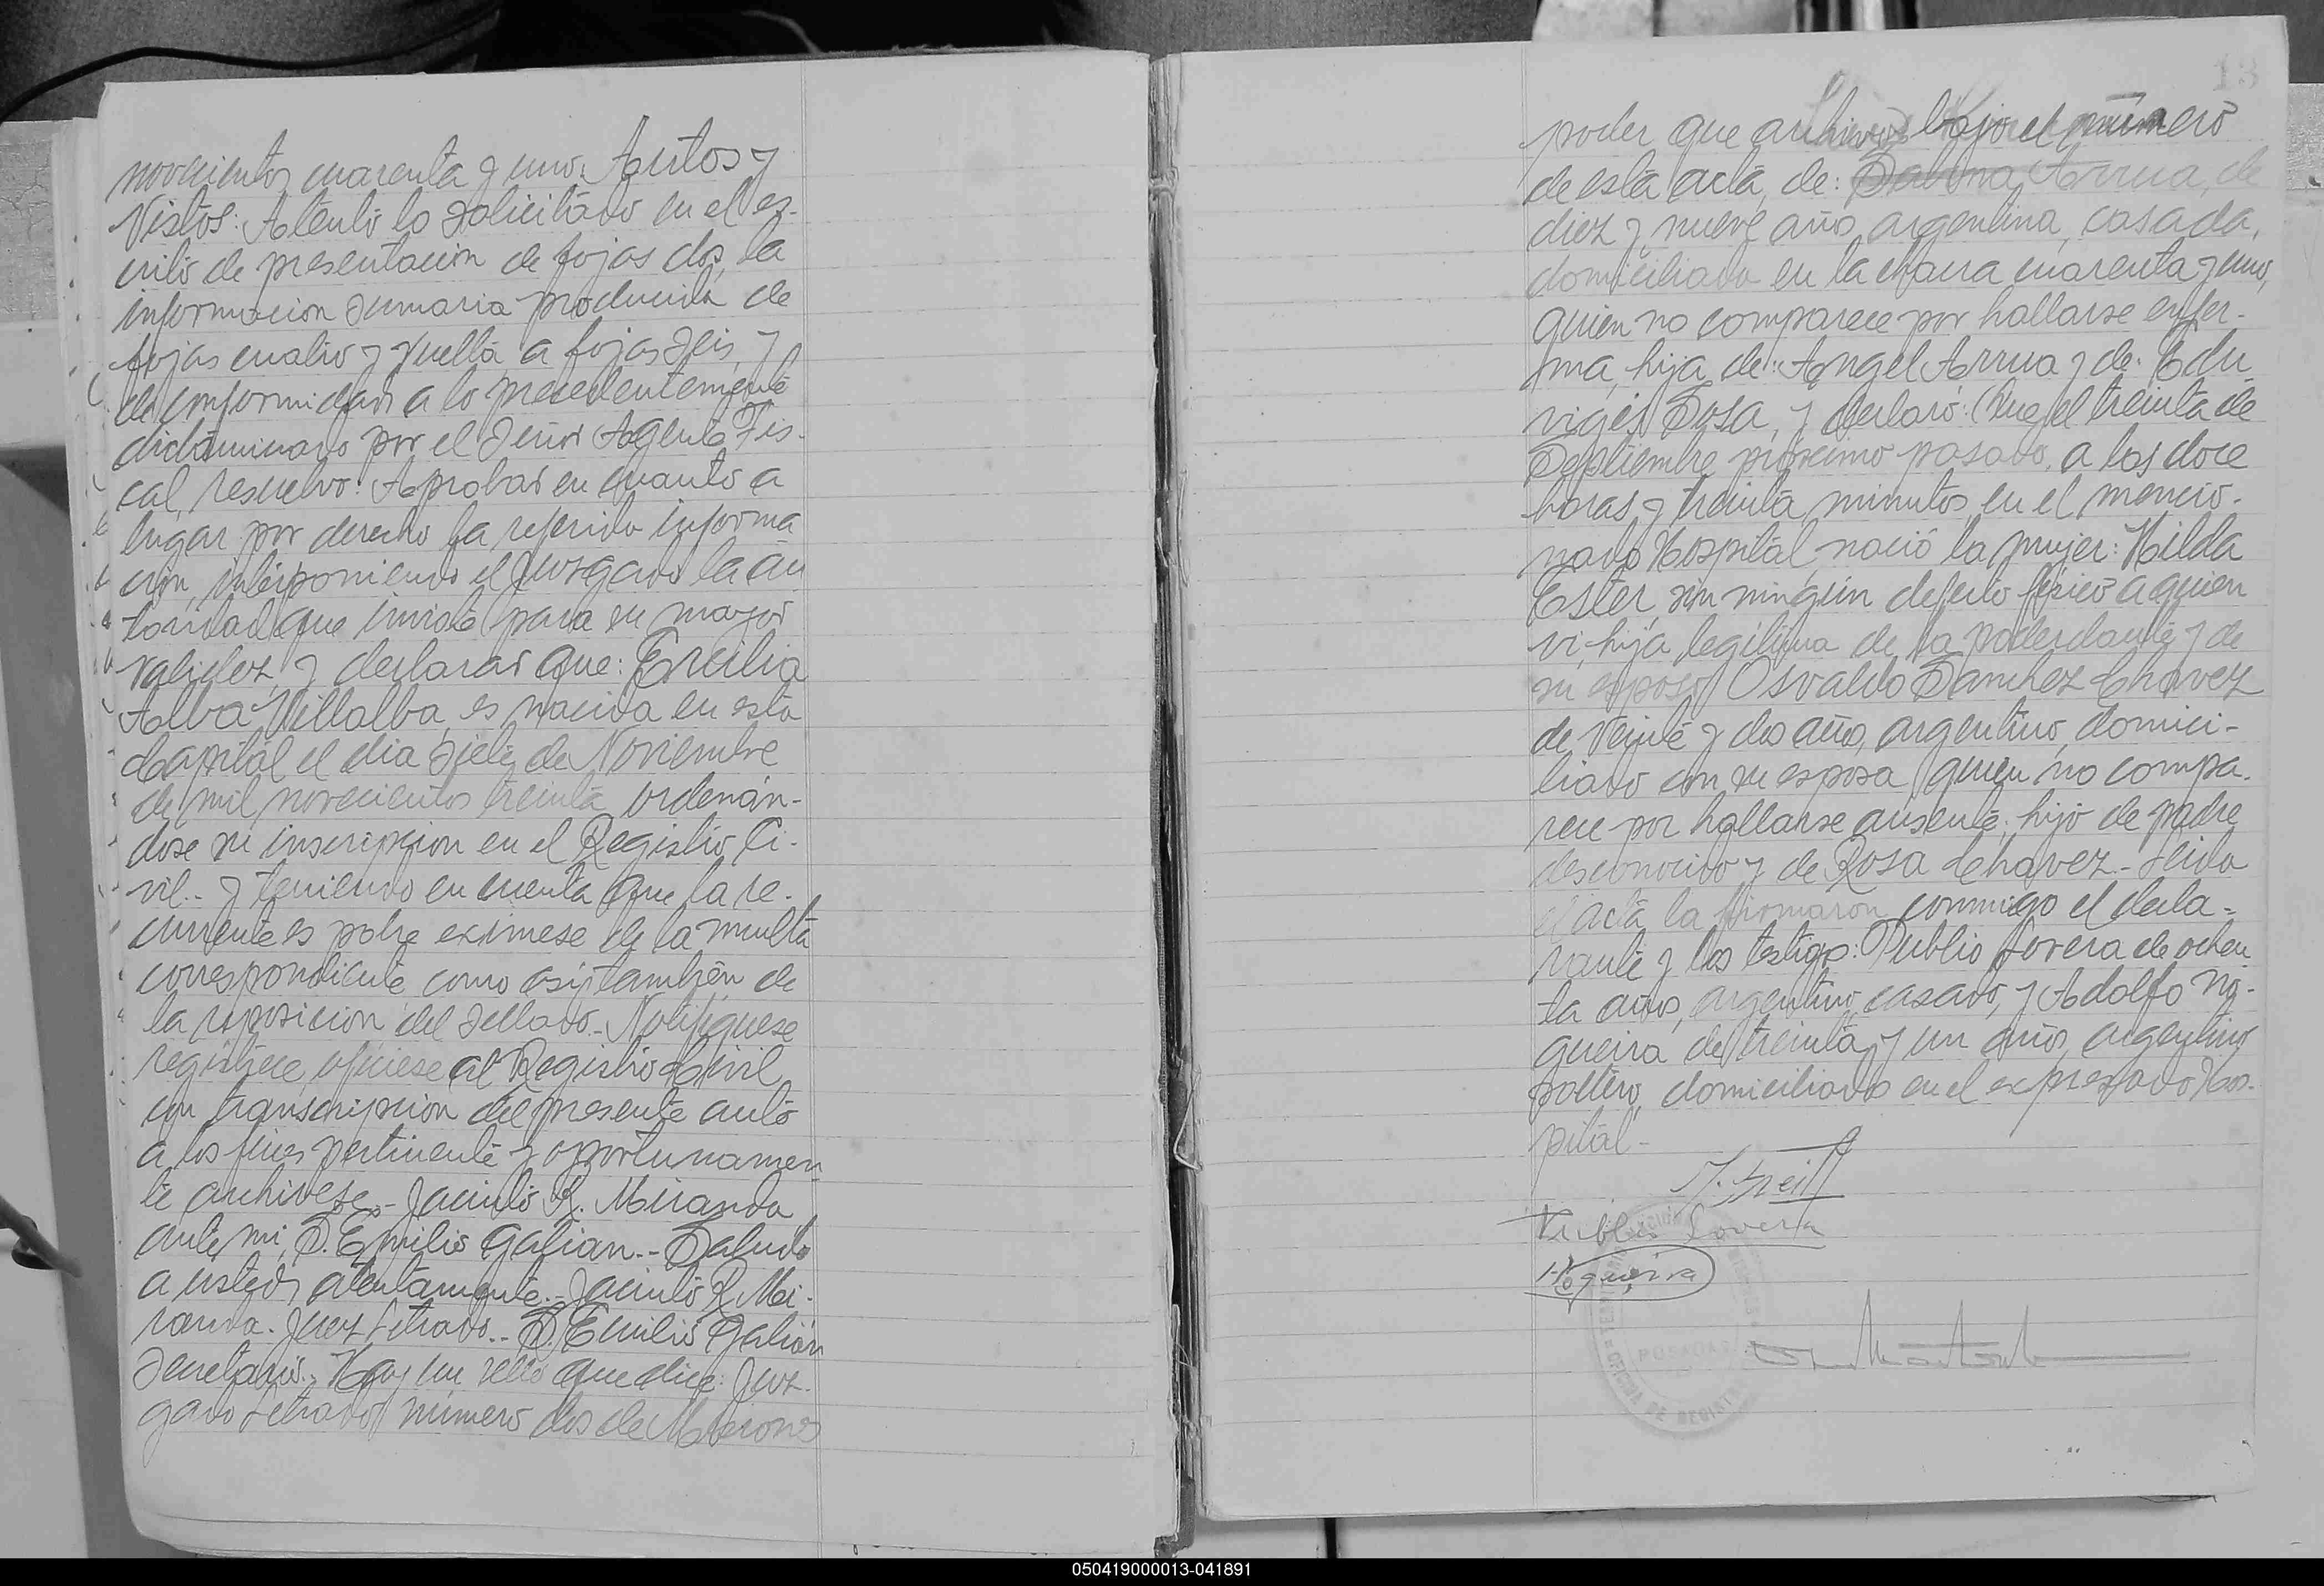 novecientos cuarenta y uno: Autos y
Vistos: Atento lo solicitado en el es-
crito de presentación de fojas dos, la
informacion sumaria producida de
fojas cuatro y vuelta a fojas seis, y
de conformidad a lo precedentemente
dictaminado por el señor Agente Fis-
cal, resuelvo: Aprobar en cuanto a
lugar por derecho la referida informa
ción, interponiendo el Juzgado la au
toridad que inviste para su mayor
validez, y declarar que: Ercilia
Alba Villalba, es nacida en esta
Capital el dia siete de Noviembre
de mil novecientos treinta, ordenán-
dose su inscripcion en el Registro Ci-
vil.- y teniendo en cuenta que la re-
currente es pobre exímese de la multa
correspondiente como asi tambien de
la reposicion del sellado.- Notifiquese
registrese, oficiese al Registro Civil
con transcripcion del presente auto
a los fines pertinente y oportunamen
te archivese.- Jacinto R. Miranda
ante mi, S. Emilio Galian.- Saludo
a usted, atentamente.- Jacinto R. Mi-
randa. Juez Letrado.- S. Emilio Galián
Secretario.- Hay un sello que dice: Juz-
gado Letrado número dos de Misiones
13
poder que archivo bajo el número
de esta acta, de: Sabina Arrua, de
diez y nueve año, argentina, casada,
domiciliada en la chacra cuarenta y uno,
quien no comparece por hallarse enfer-
ma, hija de: Angel Arrua y de: Edu
viges Sosa, y declaró: Que el treinta de
Septiembre próximo pasado, a las doce
horas y treinta minutos, en el mencio-
nado Hospital, nació la mujer: Hilda
Ester, sin ningún defecto físico a quien
vi, hija legítima de la poderdante y de
su esposo Osvaldo Sanchez Chavez
de veinte y dos año, argentino, domici-
liado con su esposa quien no compa-
rece por hallarse ausente, hijo de padre
desconocido y de Rosa Chavez.- Leida
el acta la firmaron conmigo el decla-
rante y los testigo: Publio Lovera de ochen
ta años, argentino, casado, y Adolfo No-
gueira de treinta y un año, argentino
soltero, domiciliado en el expresado Hos-
pital-
Publio Lovera
Nogueira
POSADAS
050419000013-041891